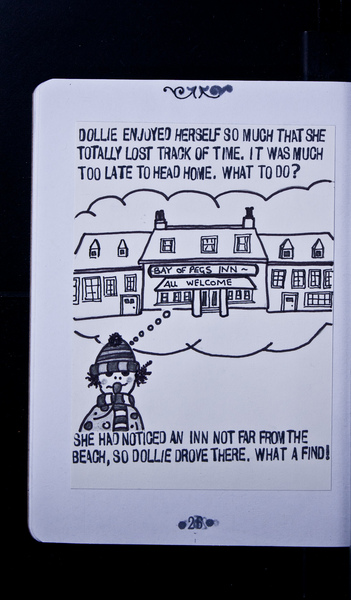 DOLLIE ENJOYED HERSELF SO MUCH THAT SHE
TOTALLY LOST TRACK OF TIME. IT WAS MUCH
TOO LATE TO HEAD HOME. WHAT TO DO?
BAY OF PEGS INN ~
ALL WELCOME
SHE HAD NOTICED AN INN NOT FAR FROM THE
BEACH, SO DOLLIE DROVE THERE. WHAT A FIND!